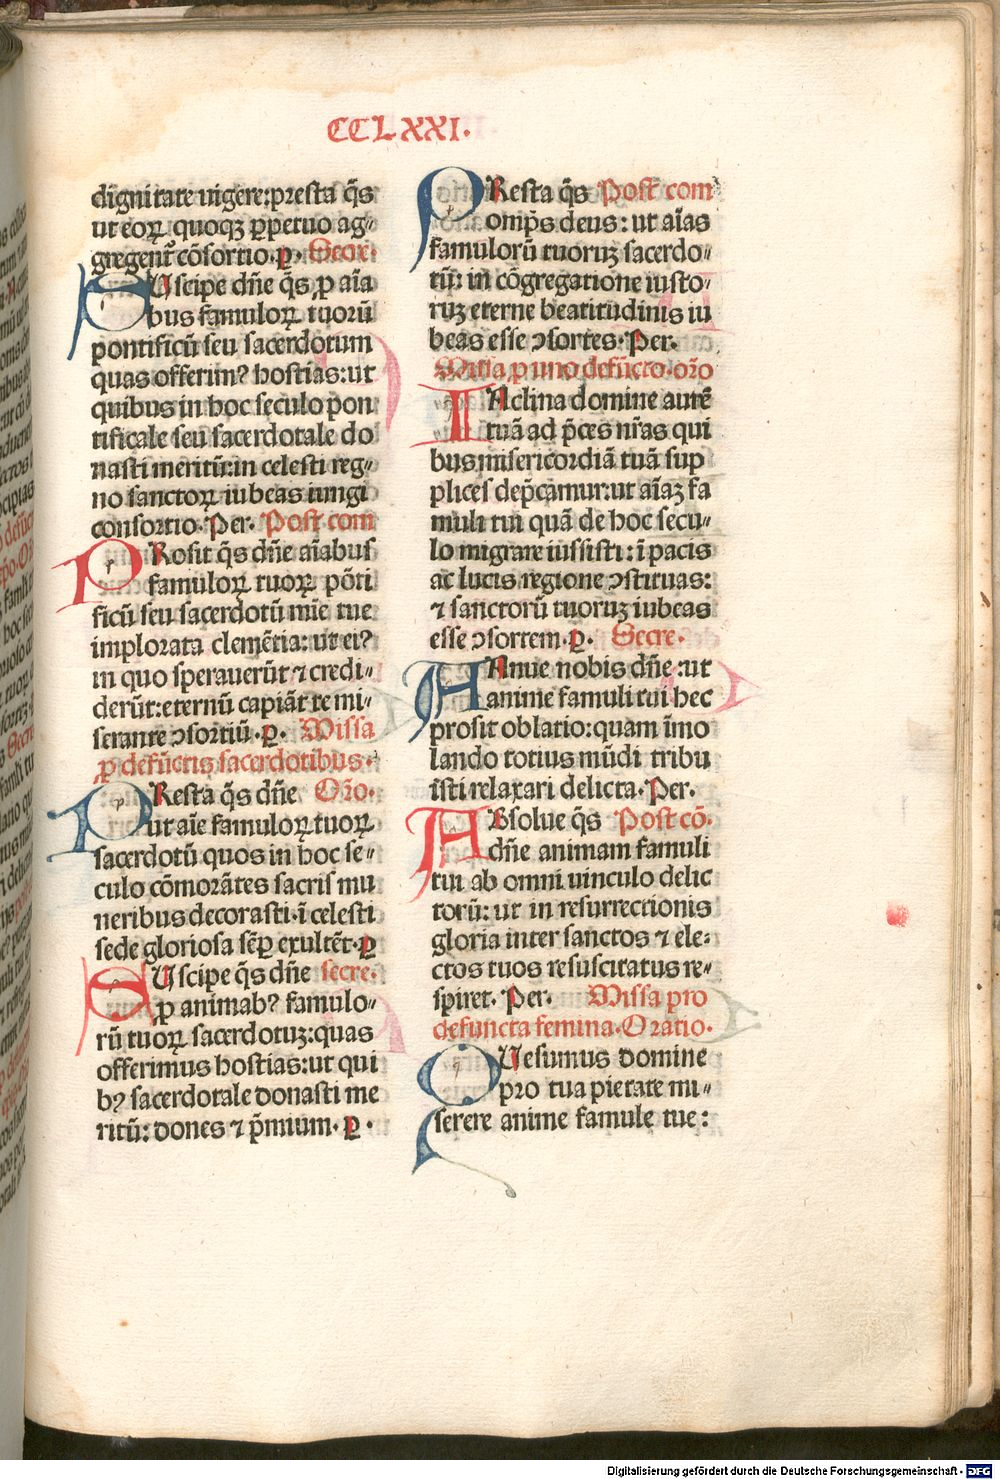 CCLXXI.
dignitate vigere: presta q̄s
ut eoꝝ quoqꝫ ꝑpetuo ag⸗
gregent᷑ cōsortio. ꝑ. Secre.
SUscipe dñe q̄s ꝓ aīa
bus famuloꝝ tuorū
pontificū seu sacerdotum
quas offerimꝰ hostias: ut
quibus in hoc seculo pon
tificale seu sacerdotale do
nasti meritū: in celesti reg⸗
no sanctoꝝ iubeas iungi
consortio. Per. Post com
PRosit q̄s dñe aīabus
famuloꝝ tuoꝝ pōti
ficū seu sacerdotū mīe tue
implorata clemētia: ut eiꝰ
in quo sperauerūt ⁊ credi⸗
derūt: eternū capiāt te mi⸗
serante ↄsortiū. ꝑ. Missa
ꝓ defūctis sacerdotibus.
PResta q̄s dñe Orō.
ut aīe famuloꝝ tuoꝝ
sacerdotū quos in hoc se⸗
culo cōmorātes sacris mu
neribus decorasti. ī celesti
sede gloriosa sēꝑ exultēt. ꝑ
SUscipe q̄s dñe secre.
ꝓ animabꝰ famulo⸗
rū tuoꝝ sacerdotuꝫ: quas
offerimus hostias: ut qui
bꝰ sacerdotale donasti me
ritū: dones ⁊ p̄mium. ꝑ.
PResta q̄s Post com
omp̄s deus: ut aīas
famulorū tuoruꝫ sacerdo⸗
tū: in cōgregatione iusto⸗
ruꝫ eterne beatitudinis iu
beas esse ↄsortes. Per.
Missa ꝓ uno defūcto. orō
INclina domine aurē
tuā ad p̄ces nr̄as qui
bus misericordiā tuā sup
plices dep̄camur: ut aīaꝫ fa
muli tui quā de hoc secu⸗
lo migrare iussisti: ī pacis
ac lucis regione ↄstituas:
⁊ sanctorū tuoruꝫ iubeas
esse ↄsortem. ꝑ. Secre.
ANnue nobis dñe: ut
anime famuli tui hec
prosit oblatio: quam īmo
lando totius mūdi tribu
isti relaxari delicta. Per.
ABsolue q̄s Post cō.
dñe animam famuli
tui ab omni uinculo delic
torū: ut in resurrectionis
gloria inter sanctos ⁊ ele⸗
ctos tuos resuscitatus re⸗
spiret. Per. Missa pro
defuncta femina. Oratio.
QUesumus domine
pro tua pietate mi⸗
serere anime famule tue:
Digitalisierung gefördert durch die Deutsche Forschungsgemeinschaft - DFG